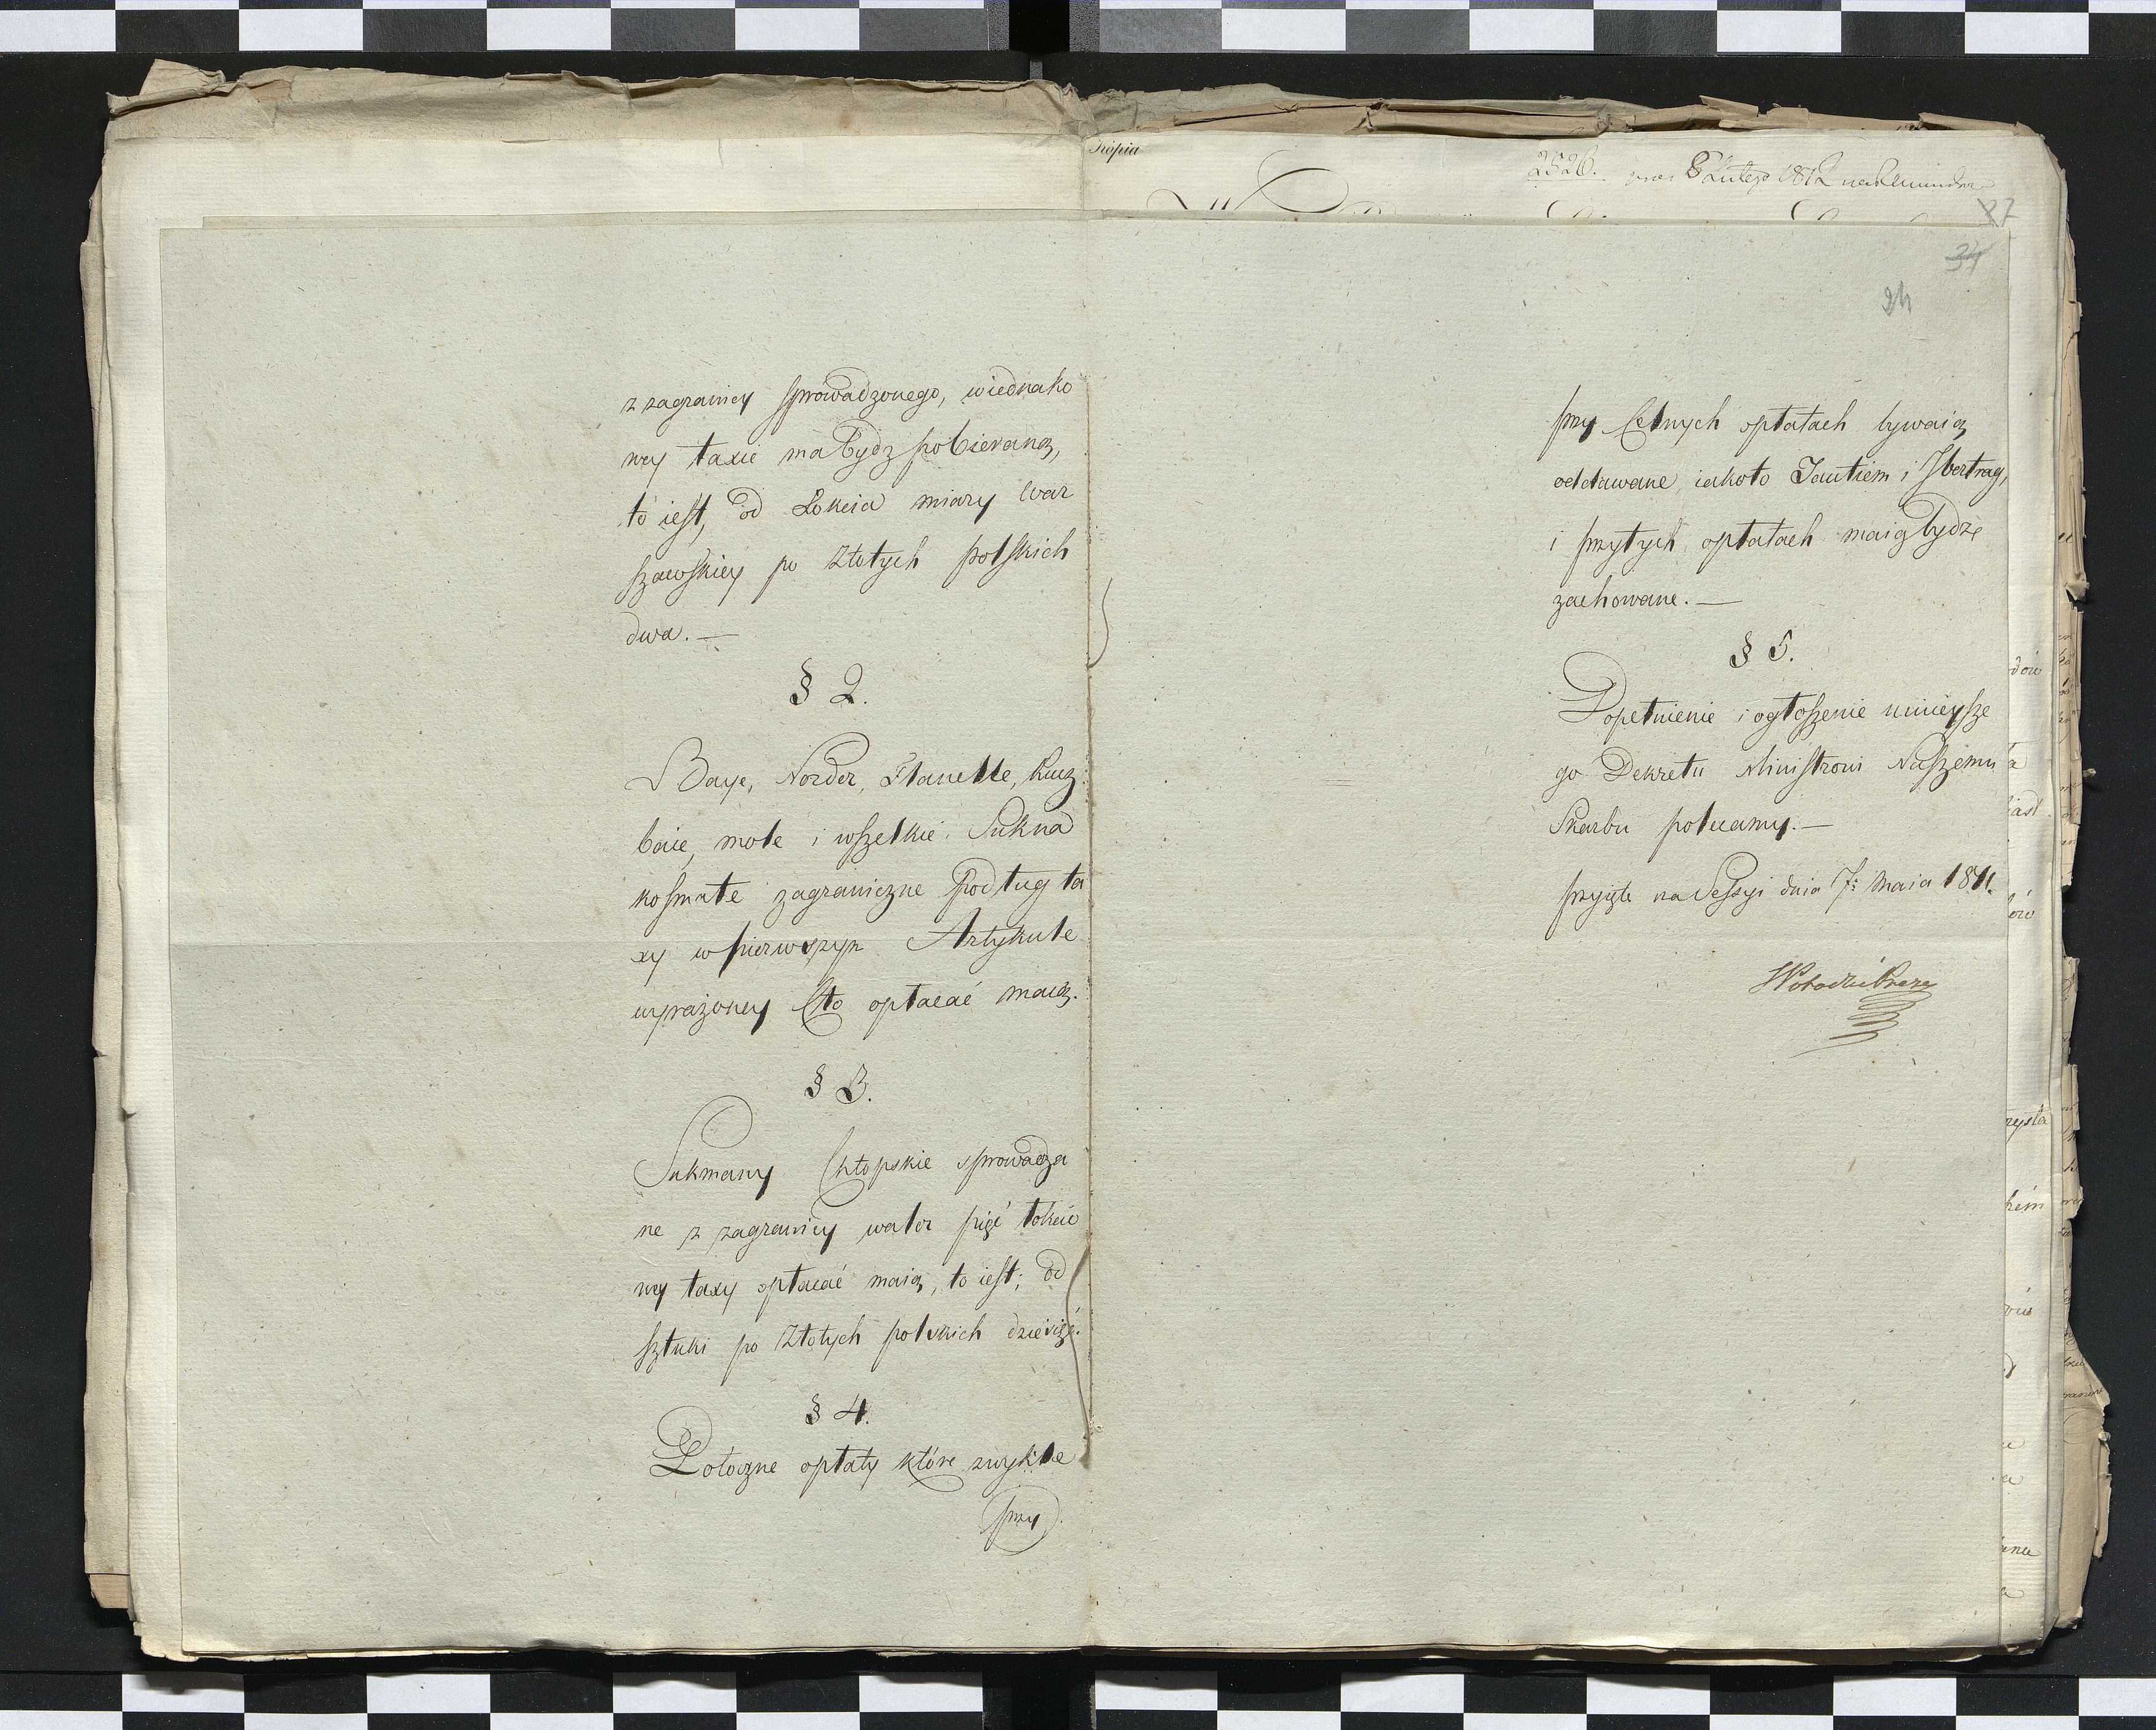 z zagranicy sprowadzonego, wiednako
wey taxie ma bydz pobieraną,
to iest, od Łokcia miary War
szawskiey po Złotych polskich
dwa. —
§ 2.
Baye, Norder, Flanelle, Kucz
baie, mole i wszelkie Sukna
kosmate zagraniczne podług ta
xy w pierwszym Artykule
wyrażoney Cło opłacać maią.
§ 3.
Sukmany Chłopskie sprowadza
ne z zagranicy walor pięć łokcio
wey taxy opłacać maią, to iest; od
sztuki po Złotych polskich dziesięć.
§ 4.
Potoczne opłaty które zwykle
przy
Kopia
2526. 8 Lutego 1812
27
34
24
przy Celnych opłatach bywaią
oddawane, iakoto Tantiem i Ibertrag,
i przytych opłatach maią bydź
zachowane. —
§ 5.
Dopełnienie i ogłoszenie ninieysze
go Dekretu Ministrowi Naszemu
Skarbu polecamy. —
przyięte na Sessyi dnia 7: Maia 1811.